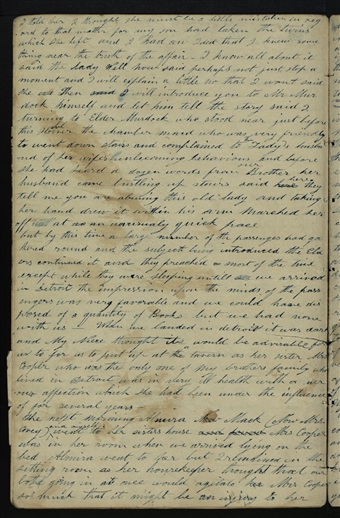 I told her I thought she must be a little mistaken in reg
ard to that matter for my son had taken the
which she left and I had an idea that I knew some
thing near the truth of the affair. I know all about it
said the Lady Well now said perhaps not just stop a
moment and I will explain a little no that I wont said
she then said I will introduce you to Mr Mur
dock himself and let him tell the story said I
turning to Elder Murdock who stood near just before
this the chamber maid who was very friendly
to went down stairs and complained to the Lady's husb
and of her unbecoming behaviour and before
she had heard a dozen words from Brother her
husband came bustling up stairs said here they
tell me you are abusing this old lady and taking
her hand drew it within his arm marched her
off at an unusualy quick pace
but by this time a large number of the passengers had ga
thered round and the subject being introduced the Elders
continued it and they preached most of the time
except while they were sleeping untill we arrived
in Detroit the impression upon the minds of the pas
sengers was very favorable and we could have dis
posed of a quantity of Books but we had none
with us — When we landed in detroit it was dark
and My Niece thought it would be advisable for
us to go to put up at the tavern as her sister Mrs
Cooper who was the only one of my brothers family who
lived in Detroit was in very ill health with a ner
vous affection which she had been under the influence
of for several years
The next morning Almira Mack (now Mrs
Covey) went to her sisters house Mrs Cooper
was in her room when we arrived lying on the
bed Almira went to far but I remained in the
setting room as her housekeeper thought that our
both going in at once would agitate her Mrs Cooper
so much that it might be an injury to her